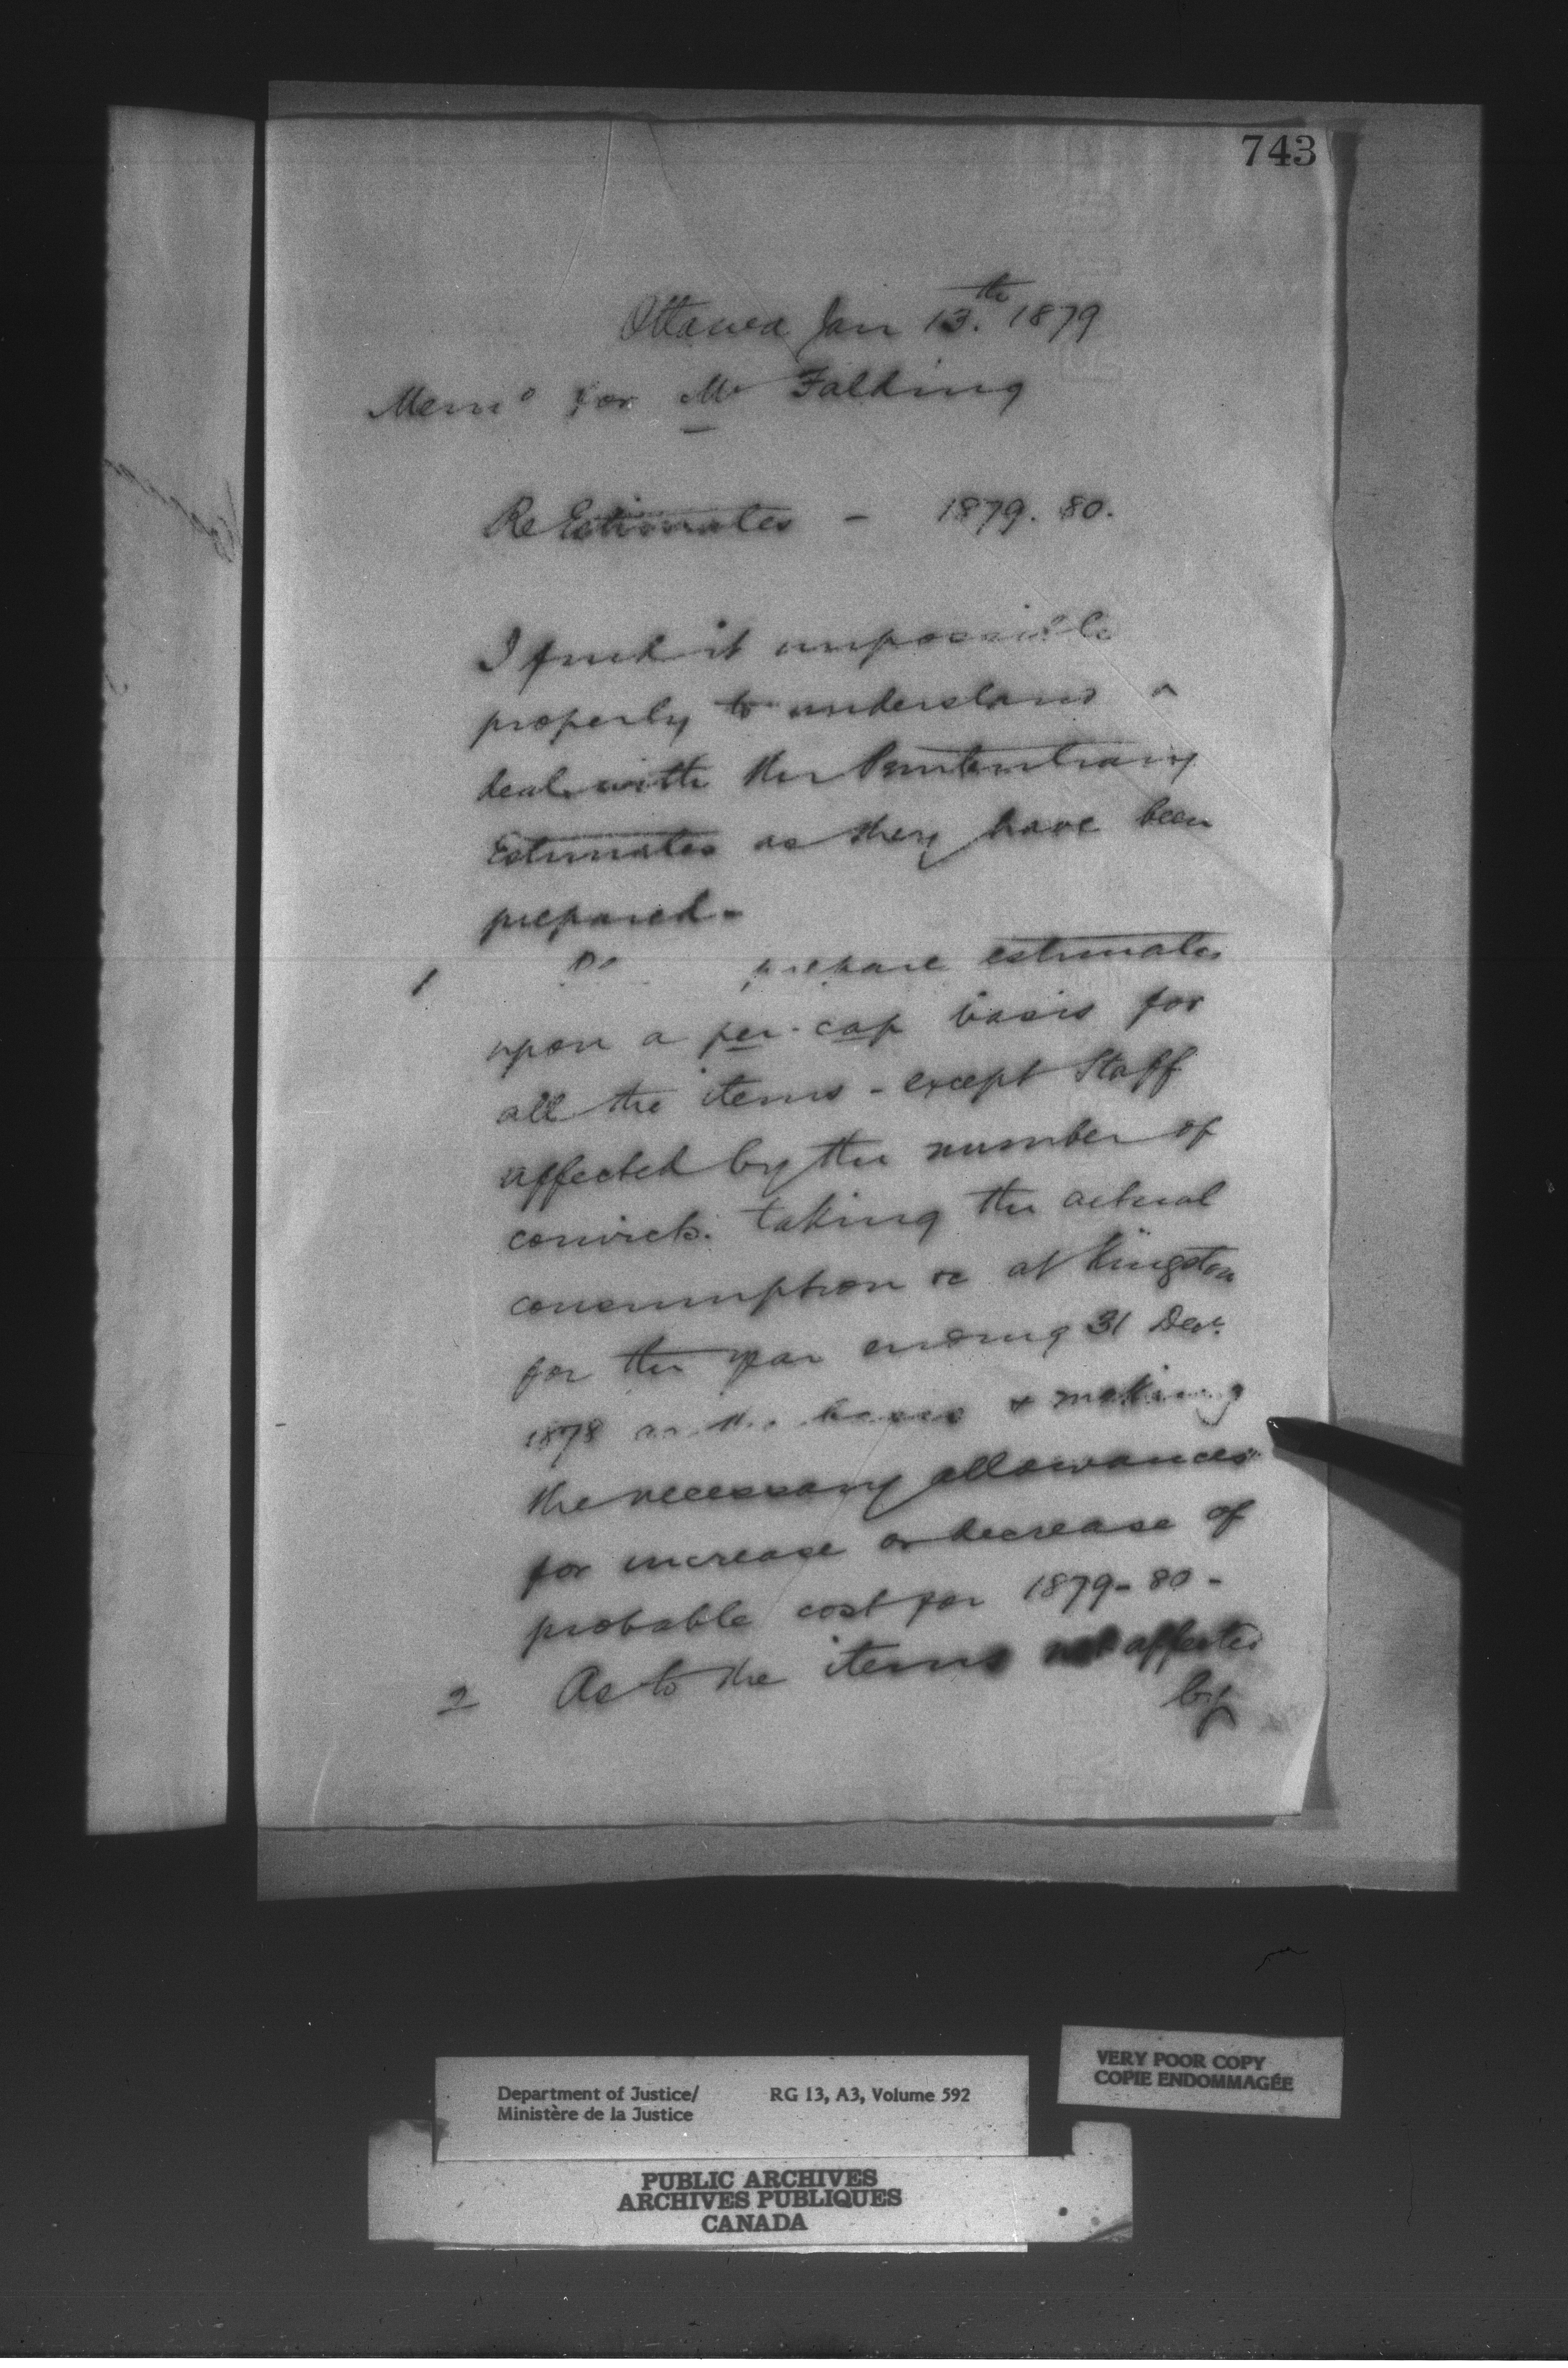 743
Ottawa Jan 13.th 1879
Memo for Mr Falding
Re Estimates - 1879. 80.
I find it impossible
properly to understand &
deal with the Penitentiary
Estimates as they have been
prepared -
1 prepare estimates
upon a per-cap basis for
all the items - except Staff
affected by the number of
convicts. taking the actual
consumption &c at Kingston
for the year ending 31 Decr.
1878 as the basis & making
the necessary allowances
for increase or decrease of
probable cost for 1879-80-
2 As to the items not affected
by
VERY POOR COPY
COPIE ENDOMMAGÉE
Department of Justice/ RG 13, A3, Volume 592
Ministère de la Justice
PUBLIC ARCHIVES
ARCHIVES PUBLIQUES
CANADA